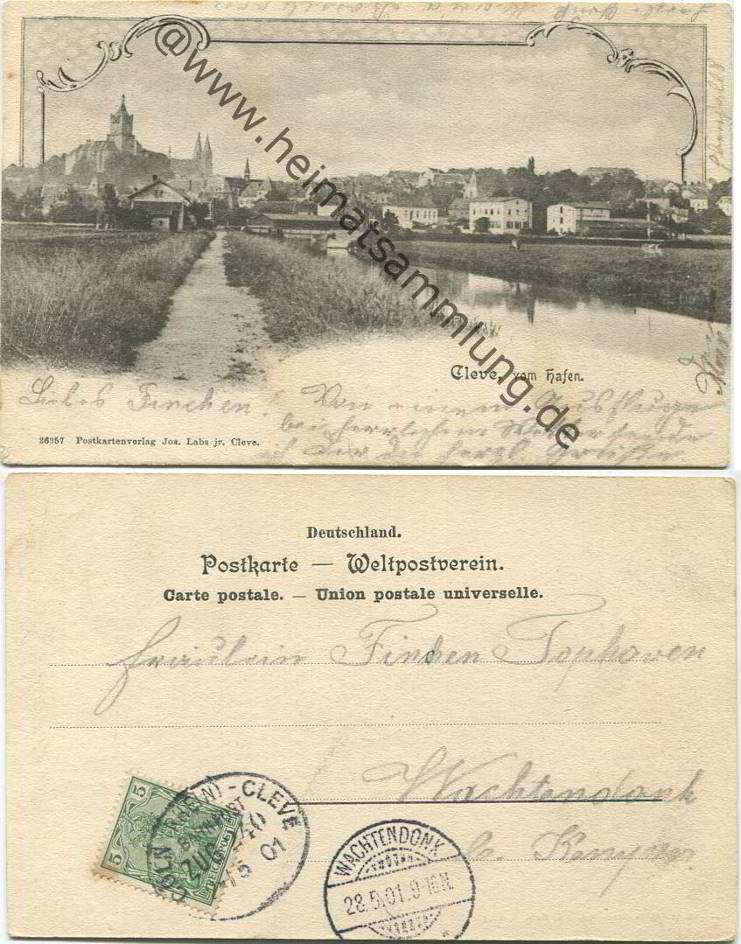 @www.heimatsammlung.de
Cleve, vom Hafen.
Liebes Finchen! Von einem Ausfluge
bei herrlichem Wetter sende
ich dir die herzl. Grüße
36357 Postkartenverlag Jos. Labs jr. Cleve.
Deutschland.
Postkarte — Weltpostverein.
Carte postale. — Union postale universelle.
Fräulein Finchen Tophoven
Wachtendonk
b. Kempen
5 5
CÖLN - CLEVE
BAHNPOST
ZUG
01
WACHTENDONK
28.5.01.9-10N.